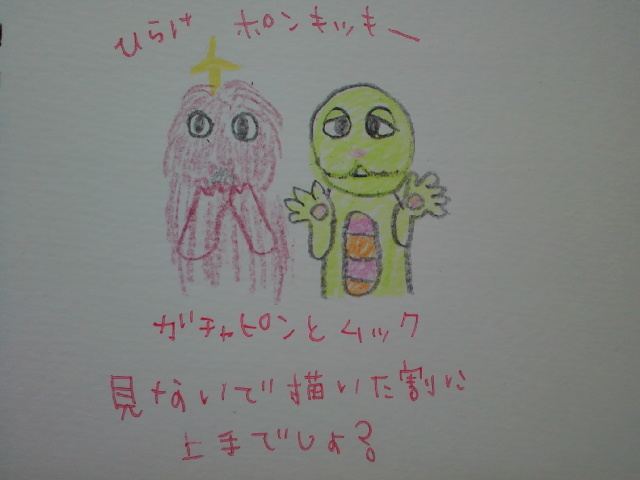 ひらけ ポンキッキー
ガチャピンとムック
見ないで描いた割に
上手でしょ?